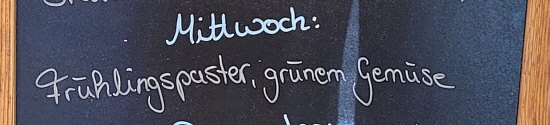 Mittwoch:
Frühlingspaster, grünem Gemüse